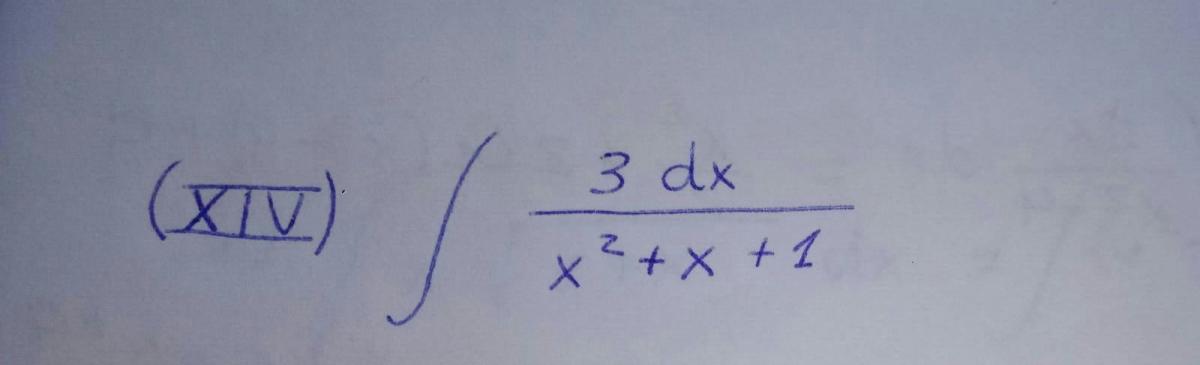 (XIV) ∫ 3 dx / x² + x + 1